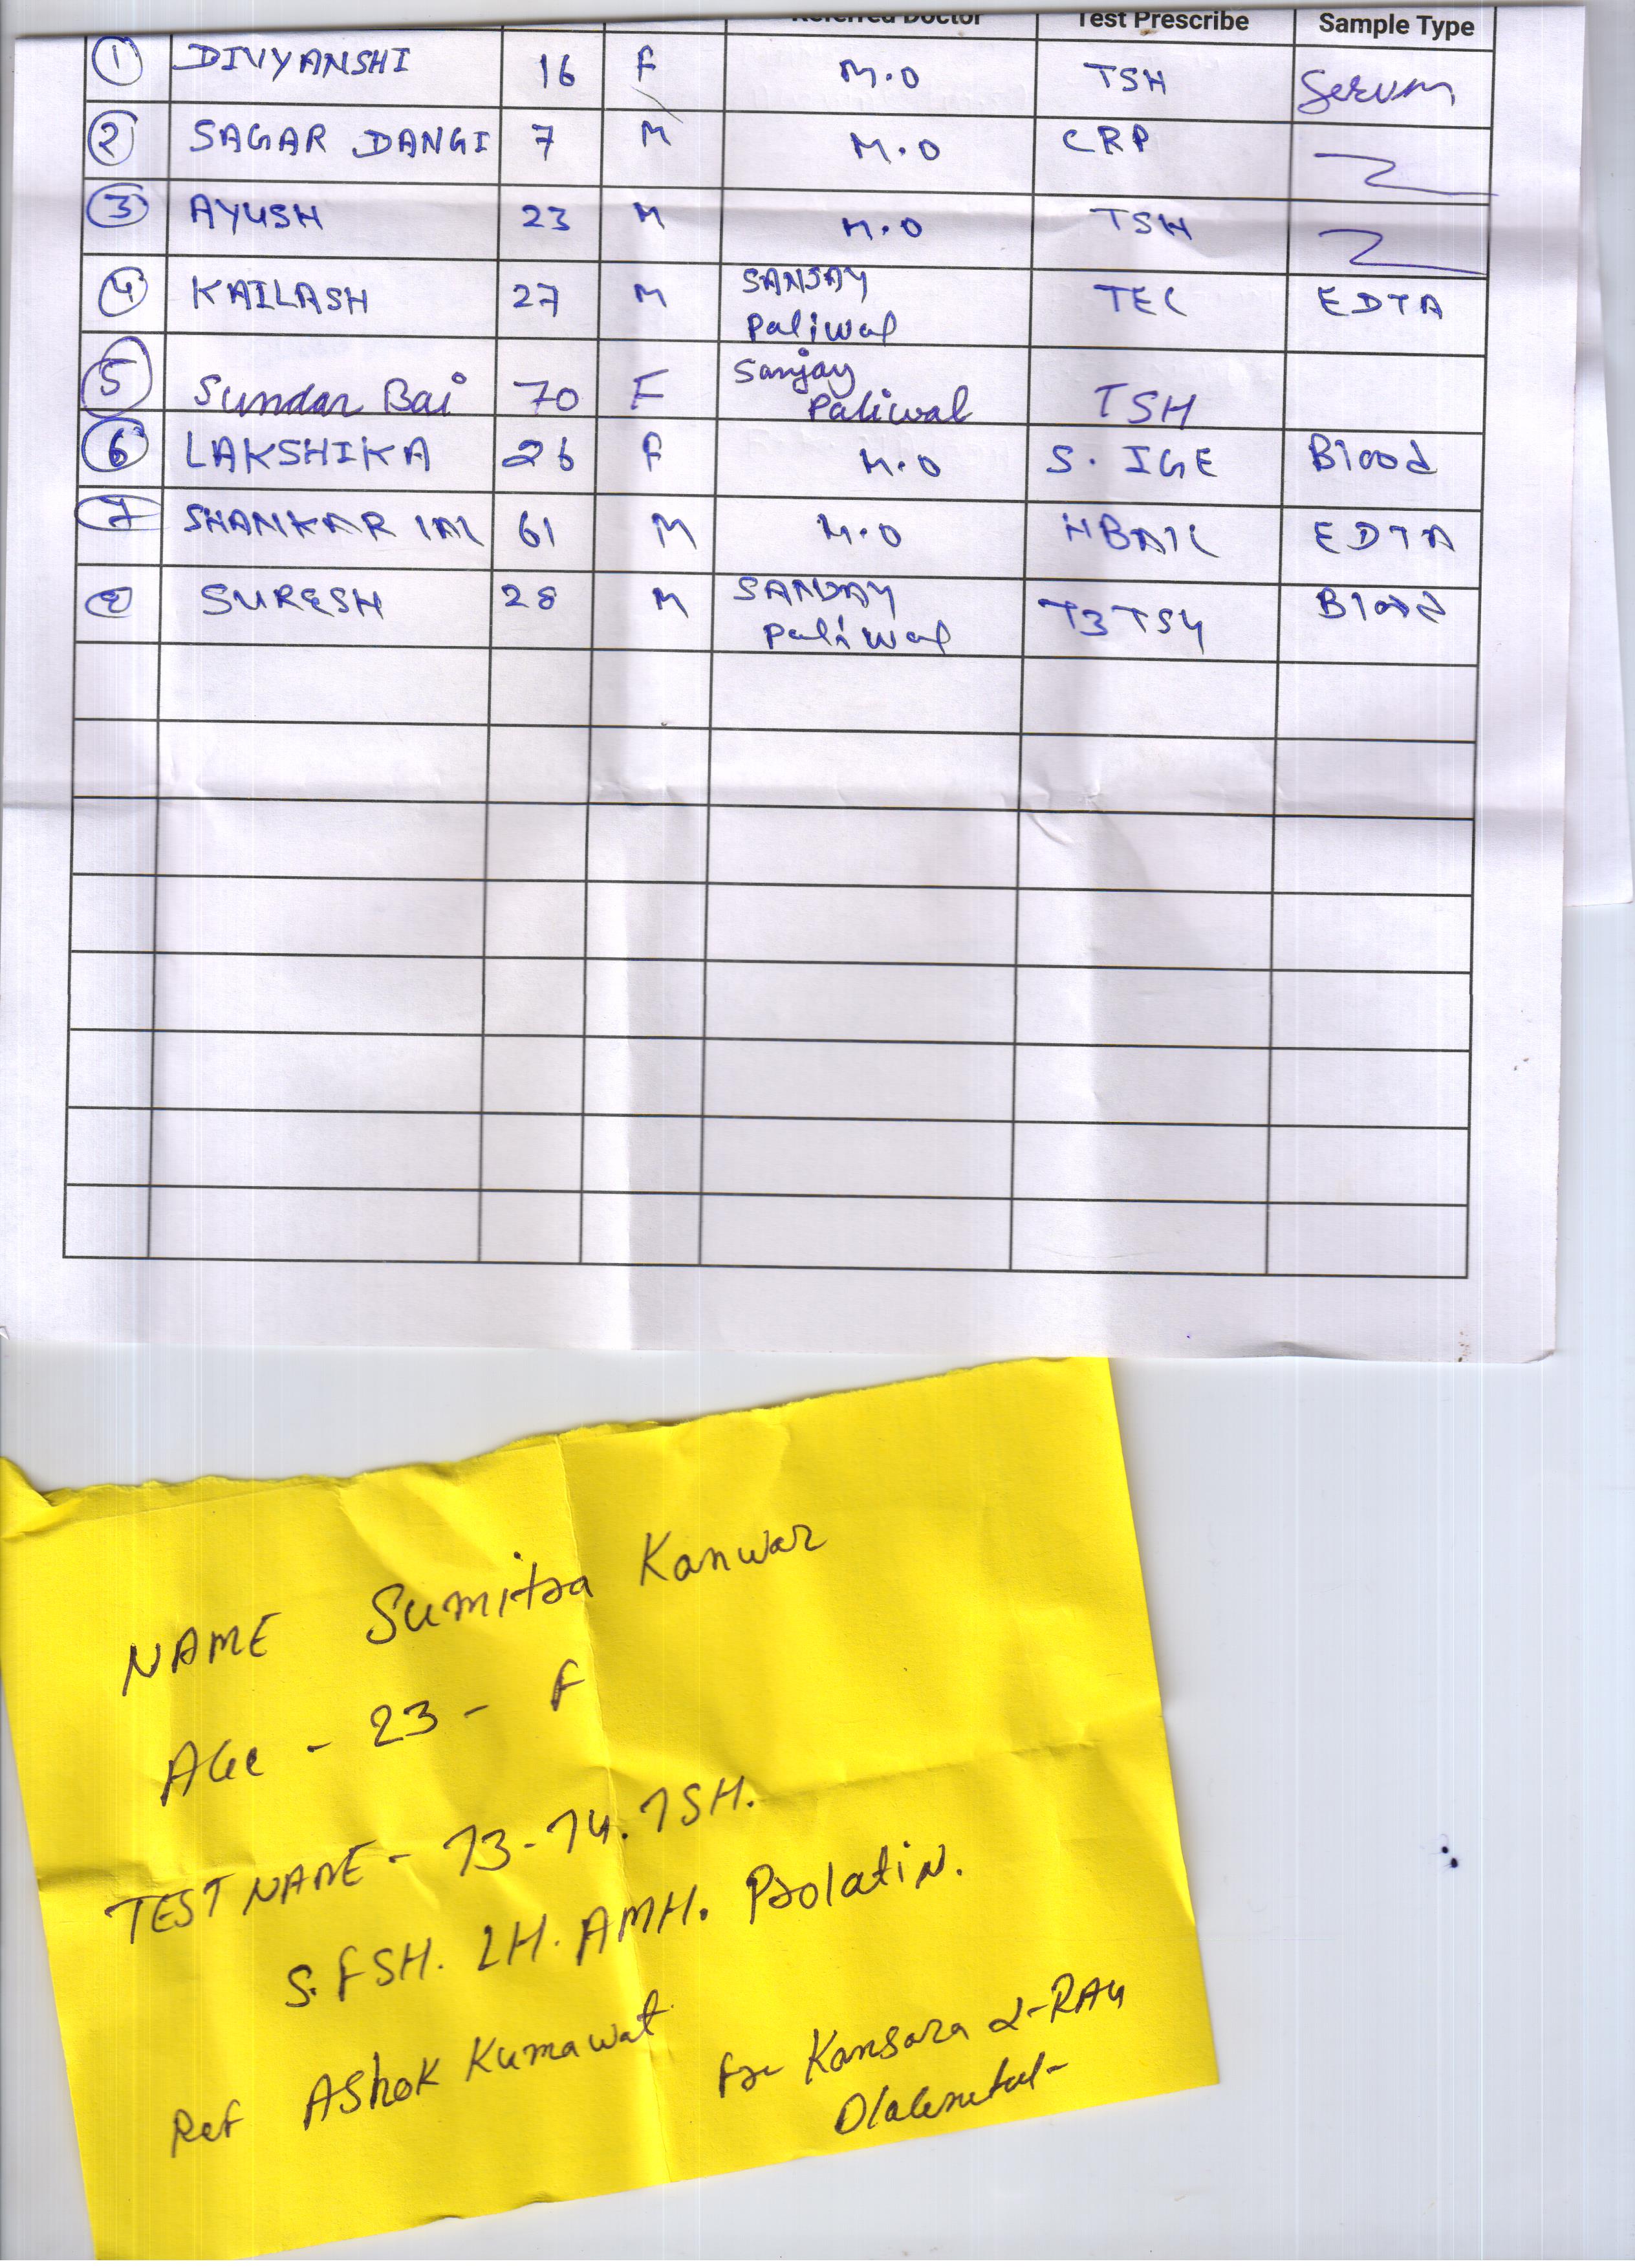 Referred Doctor Test Prescribe Sample Type
1 DIVYANSHI 16 F M.O TSH Serum
2 SAGAR DANGI 7 M M.O CRP
3 AYUSH 23 M M.O TSH
4 KAILASH 27 M SANJAY Paliwal TEC EDTA
5 Sundar Bai 70 F Sanjay Paliwal TSH
6 LAKSHIKA 26 F M.O S. IGE Blood
7 SHANKAR lAL 61 M M.O HBA1C EDTA
8 SURESH 28 M SANJAY Paliwal T3 TSH Blood
NAME Sumitra Kanwar
AGe - 23 - F
TEST NAME - T3-T4. TSH.
S. FSH. LH. AMH. Prolatin.
Ref AShok Kumawat
for Kansara X-RAY